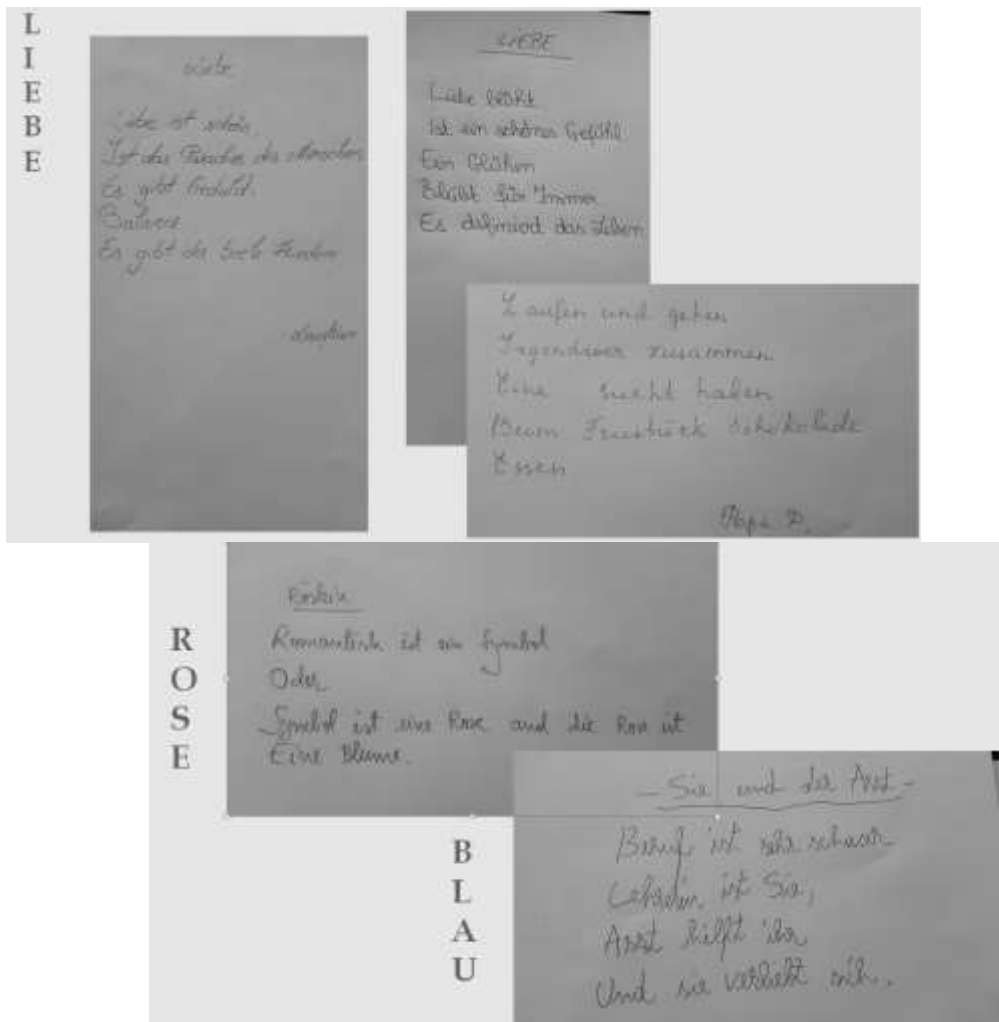 L
I
E
B
E
Liebe
Liebe ist schön
Ist das Paradies des Menschen
Es gibt Geduld.
Balance
Es gibt der Seele Frieden
LIEBE
Liebe blüht
Ist ein schönes Gefühl
Ein Glühen
Bleibt für Immer
Es definiert das Leben
Laufen und gehen
Irgendwer zusammen
Eine sucht haben
Beim Fruestück Schokolade
Essen
Papa D.
R
O
S
E
Röslein
Romantisch ist ein Symbol
Oder
Symbol ist eine Rose und die Rose ist
Eine Blume.
B
L
A
U
- Sie und der Arzt -
Beruf ist sehr schwer
Lehrerin ist Sie,
Arzt hilft ihr
Und sie verliebt sich.